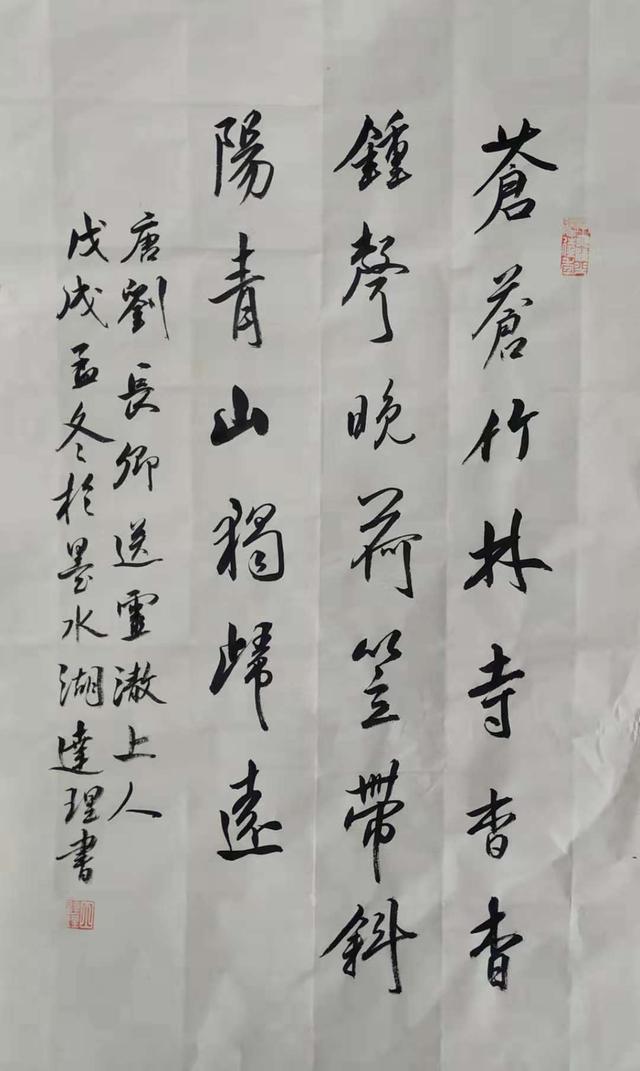 蒼蒼竹林寺杳杳
鍾聲晚荷笠帶斜
陽青山獨歸遠
唐劉長卿送靈澈上人
戊戌孟冬於墨水湖達理書